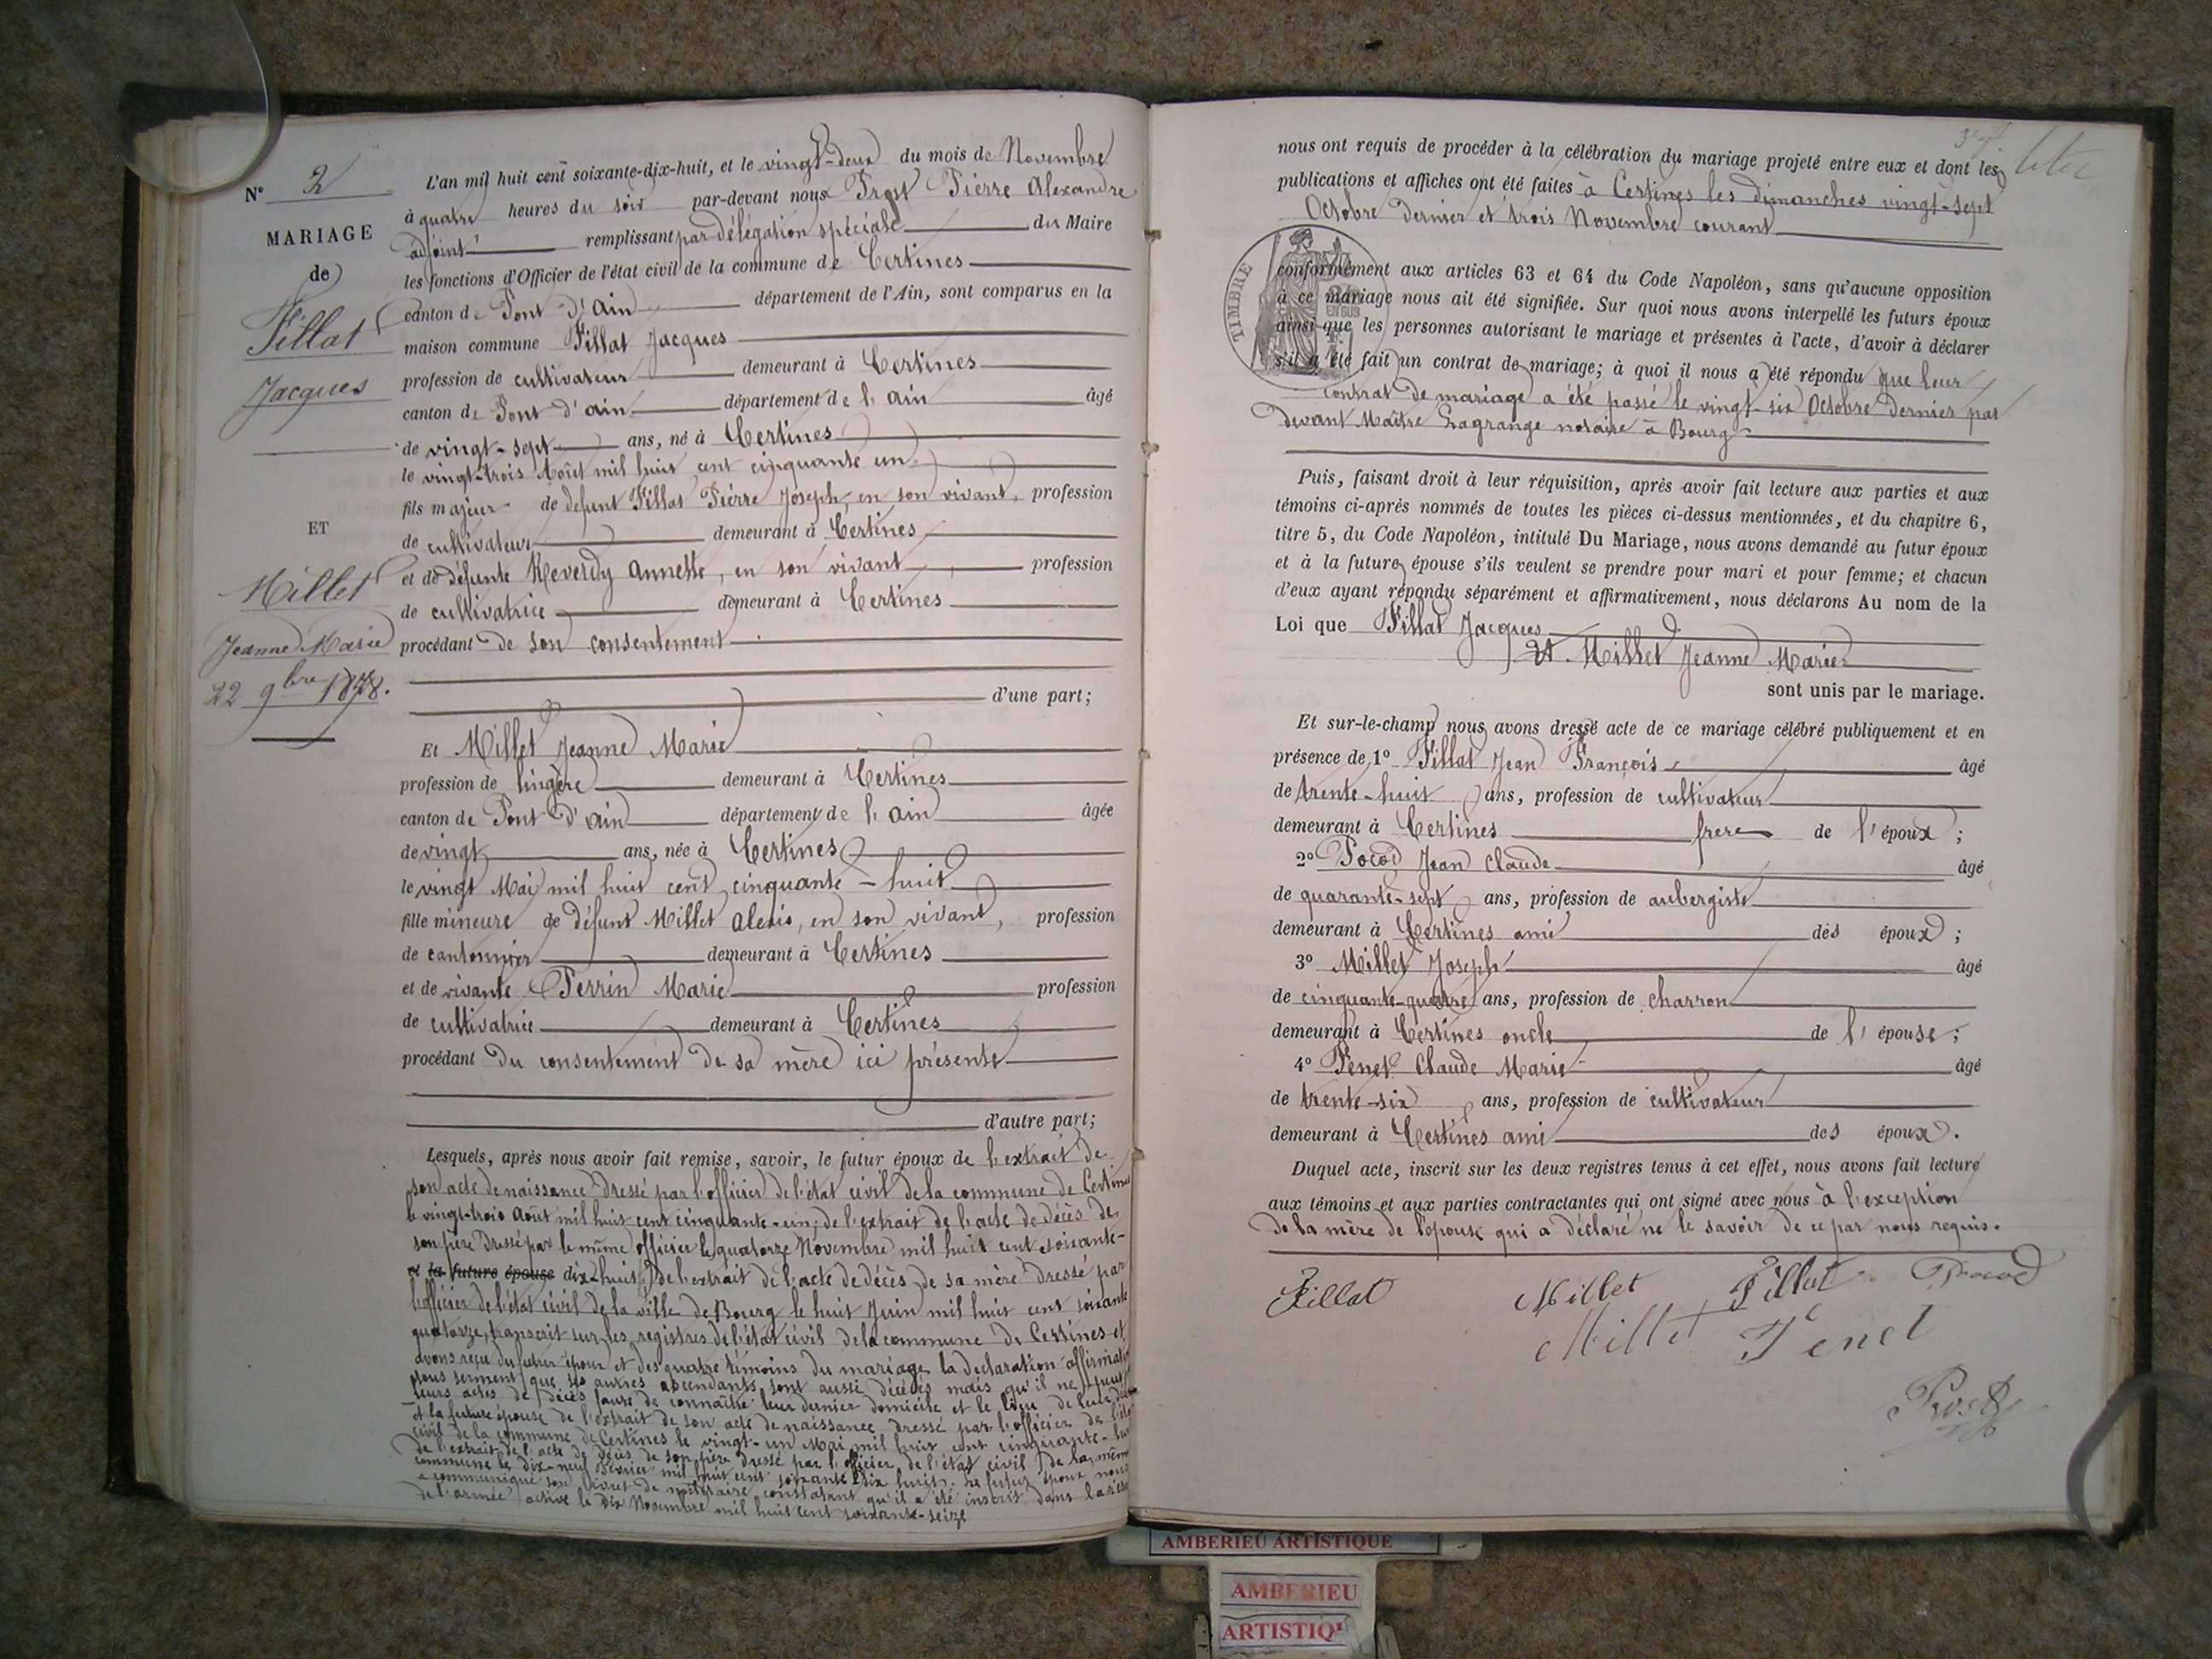 N° 2
MARIAGE
de
Fillat
Jacques
ET
Millet
Jeanne Marie
22 9bre 1878.
L'an mil huit cent soixante-dix-huit, et le vingt-deux du mois de Novembre
à quatre heures du soir par-devant nous Prost Pierre Alexandre
adjoint remplissant par délégation spéciale du Maire
les fonctions d'Officier de l'état civil de la commune de Certines
canton de Pont d'Ain département de l'Ain, sont comparus en la
maison commune Fillat Jacques
profession de cultivateur demeurant à Certines
canton de Pont d'ain département de l'ain âgé
de vingt-sept ans, né à Certines
le vingt-trois Août mil huit cent cinquante un
fils majeur de défunt Fillat Pierre Joseph, en son vivant, profession
de cultivateur demeurant à Certines
et de défunte Reverdy Annette, en son vivant, profession
de cultivatrice demeurant à Certines
procédant de son consentement
d'une part;
Et Millet Jeanne Marie
profession de lingère demeurant à Certines
canton de Pont d'ain département de l'ain âgée
de vingt ans, née à Certines
le vingt Mai mil huit cent cinquante-huit
fille mineure de défunt Millet Alexis, en son vivant, profession
de cantonnier demeurant à Certines
et de vivante Perrin Marie profession
de cultivatrice demeurant à Certines
procédant du consentement de sa mère ici présente
d'autre part;
Lesquels, après nous avoir fait remise, savoir, le futur époux de l'extrait de
son acte de naissance dressé par l'officier de l'état civil de la commune de Certines
le vingt-trois Août mil huit cent cinquante-un; de l'extrait de l'acte de décès de
son père dressé par le même officier le quatorze Novembre mil huit cent soixante-
et la future épouse dix-huit; de l'extrait de l'acte de décès de sa mère dressé par
l'officier de l'état civil de la ville de Bourg le huit Juin mil huit cent soixante
quatorze, transcrit sur les registres de l'état civil de la commune de Certines et
avons reçu du futur époux et des quatre témoins du mariage la déclaration affirmative
sous serment que ses autres ascendants sont aussi décédés mais qu'il ne peut
leurs actes de décès faute de connaître leur dernier domicile et le lieu de leur décès
et la future épouse de l'extrait de son acte de naissance dressé par l'officier de l'état
civil de la commune de Certines le vingt-un Mai mil huit cent cinquante-huit
de l'extrait de l'acte de décès de son père dressé par l'officier de l'état civil de la même
commune le dix-neuf Février mil huit cent soixante dix huit. Le futur époux nous
a communiqué son livret de militaire constatant qu'il a été inscrit dans la
de l'armée active le dix Novembre mil huit cent soixante-seize
nous ont requis de procéder à la célébration du mariage projeté entre eux et dont les
publications et affiches ont été faites à Certines les dimanches vingt-sept
Octobre dernier et trois Novembre courant
TIMBRE
EN SUS
conformément aux articles 63 et 64 du Code Napoléon, sans qu'aucune opposition
à ce mariage nous ait été signifiée. Sur quoi nous avons interpellé les futurs époux
ainsi que les personnes autorisant le mariage et présentes à l'acte, d'avoir à déclarer
s'il a été fait un contrat de mariage; à quoi il nous a été répondu que leur
contrat de mariage a été passé le vingt-six Octobre dernier par
devant Maître Lagrange notaire à Bourg
Puis, faisant droit à leur réquisition, après avoir fait lecture aux parties et aux
témoins ci-après nommés de toutes les pièces ci-dessus mentionnées, et du chapitre 6,
titre 5, du Code Napoléon, intitulé Du Mariage, nous avons demandé au futur époux
et à la future épouse s'ils veulent se prendre pour mari et pour femme; et chacun
d'eux ayant répondu séparément et affirmativement, nous déclarons Au nom de la
Loi que Fillat Jacques
et Millet Jeanne Marie
sont unis par le mariage.
Et sur-le-champ nous avons dressé acte de ce mariage célébré publiquement et en
présence de 1° Fillat Jean François âgé
de trente-huit ans, profession de cultivateur
demeurant à Certines frere de l'époux;
2° Pocod Jean Claude âgé
de quarante-sept ans, profession de aubergiste
demeurant à Certines ami des époux;
3° Millet Joseph âgé
de cinquante-quatre ans, profession de charron
demeurant à Certines oncle de l'épouse;
4° Penet Claude Marie âgé
de trente-six ans, profession de cultivateur
demeurant à Certines ami des époux.
Duquel acte, inscrit sur les deux registres tenus à cet effet, nous avons fait lecture
aux témoins et aux parties contractantes qui ont signé avec nous à l'exception
de la mère de l'épouse qui a déclaré ne le savoir de ce par nous requis.
Fillat Millet Fillat Pocod
Millet Penet
Prost
AMBERIEU ARTISTIQUE
AMBERIEU
ARTISTIQ